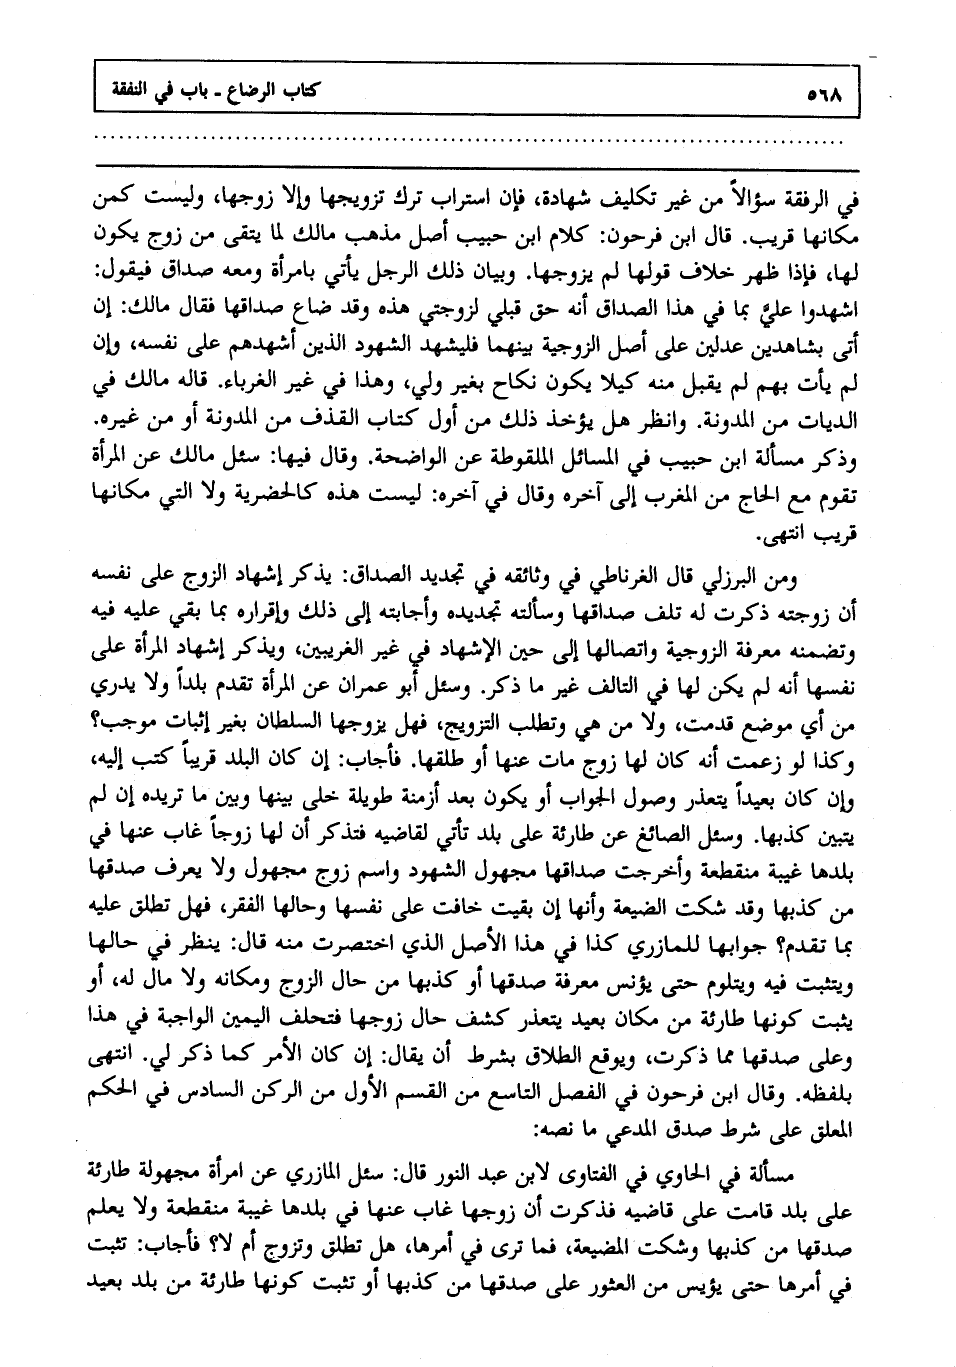 ٥٦٨ كتاب الرضاع ـ باب في النفقة
في الرفقة سؤالاً من غير تكليف شهادة، فإن استراب ترك تزويجها وإلا زوجها، وليست كمن
مكانها قريب. قال ابن فرحون: كلام ابن حبيب أصل مذهب مالك لما يتقى من زوج يكون
لها، فإذا ظهر خلاف قولها لم يزوجها. وبيان ذلك الرجل يأتي بامرأة ومعه صداق فيقول:
اشهدوا عليَّ بما في هذا الصداق أنه حق قبلي لزوجتي هذه وقد ضاع صداقها فقال مالك: إن
أتى بشاهدين عدلين على أصل الزوجية بينهما فليشهد الشهود الذين أشهدهم على نفسه، وإن
لم يأت بهم لم يقبل منه كيلا يكون نكاح بغير ولي، وهذا في غير الغرباء. قاله مالك في
الديات من المدونة. وانظر هل يؤخذ ذلك من أول كتاب القذف من المدونة أو من غيره.
وذكر مسألة ابن حبيب في المسائل الملقوطة عن الواضحة. وقال فيها: سئل مالك عن المرأة
تقوم مع الحاج من المغرب إلى آخره وقال في آخره: ليست هذه كالحضرية ولا التي مكانها
قريب انتهى.
ومن البرزلي قال الغرناطي في وثائقه في تجديد الصداق: يذكر إشهاد الزوج على نفسه
أن زوجته ذكرت له تلف صداقها وسألته تجديده وأجابته إلى ذلك وإقراره بما بقي عليه فيه
وتضمنه معرفة الزوجية واتصالها إلى حين الإشهاد في غير الغريبين، ويذكر إشهاد المرأة على
نفسها أنه لم يكن لها في التالف غير ما ذكر. وسئل أبو عمران عن المرأة تقدم بلداً ولا يدري
من أي موضع قدمت، ولا من هي وتطلب التزويج، فهل يزوجها السلطان بغير إثبات موجب؟
وكذا لو زعمت أنه كان لها زوج مات عنها أو طلقها. فأجاب: إن كان البلد قريباً كتب إليه،
وإن كان بعيداً يتعذر وصول الجواب أو يكون بعد أزمنة طويلة خلى بينها وبين ما تريده إن لم
يتبين كذبها. وسئل الصائغ عن طارئة على بلد تأتي لقاضيه فتذكر أن لها زوجاً غاب عنها في
بلدها غيبة منقطعة وأخرجت صداقها مجهول الشهود واسم زوج مجهول ولا يعرف صدقها
من كذبها وقد شكت الضيعة وأنها إن بقيت خافت على نفسها وحالها الفقر، فهل تطلق عليه
بما تقدم؟ جوابها للمازري كذا في هذا الأصل الذي اختصرت منه قال: ينظر في حالها
ويتثبت فيه ويتلوم حتى يؤنس معرفة صدقها أو كذبها من حال الزوج ومكانه ولا مال له، أو
يثبت كونها طارئة من مكان بعيد يتعذر كشف حال زوجها فتحلف اليمين الواجبة في هذا
وعلى صدقها مما ذكرت، ويوقع الطلاق بشرط أن يقال: إن كان الأمر كما ذكر لي. انتهى
بلفظه. وقال ابن فرحون في الفصل التاسع من القسم الأول من الركن السادس في الحكم
المعلق على شرط صدق المدعي ما نصه:
مسألة في الحاوي في الفتاوى لابن عبد النور قال: سئل المازري عن امرأة مجهولة طارئة
على بلد قامت على قاضيه فذكرت أن زوجها غاب عنها في بلدها غيبة منقطعة ولا يعلم
صدقها من كذبها وشكت المضيعة، فما ترى في أمرها، هل تطلق وتزوج أم لا؟ فأجاب: تثبت
في أمرها حتى يؤيس من العثور على صدقها من كذبها أو تثبت كونها طارئة من بلد بعيد